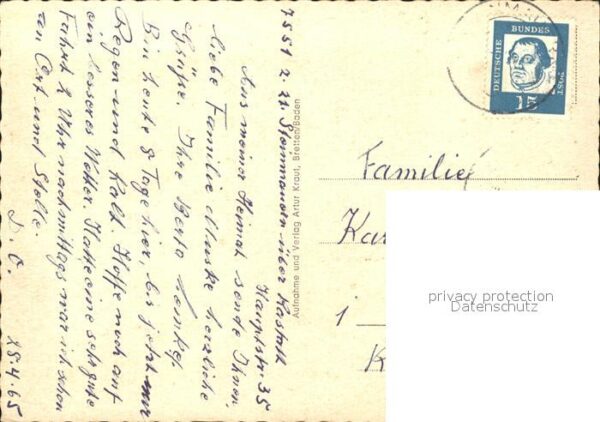 7551 z. Zt. Steinmauern über Rastatt
Hauptstr 35
Aus meiner Heimat sende Ihnen,
liebe Familie herzliche
Grüße. Ihre Berta
Bin heute 8 Tage hier, bis jetzt nur
Regen und Kalt. Hoffe noch auf
ein besseres Wetter. Hatte eine sehr gute
Fahrt 2 Uhr nachmittags war ich schon
an Ort und Stelle.
D. O.
25.4.65
Aufnahme und Verlag Artur Kraut, Bretten/Baden
DEUTSCHE
BUNDES
POST
15
Familie
Kar
1
K
privacy protection
Datenschutz